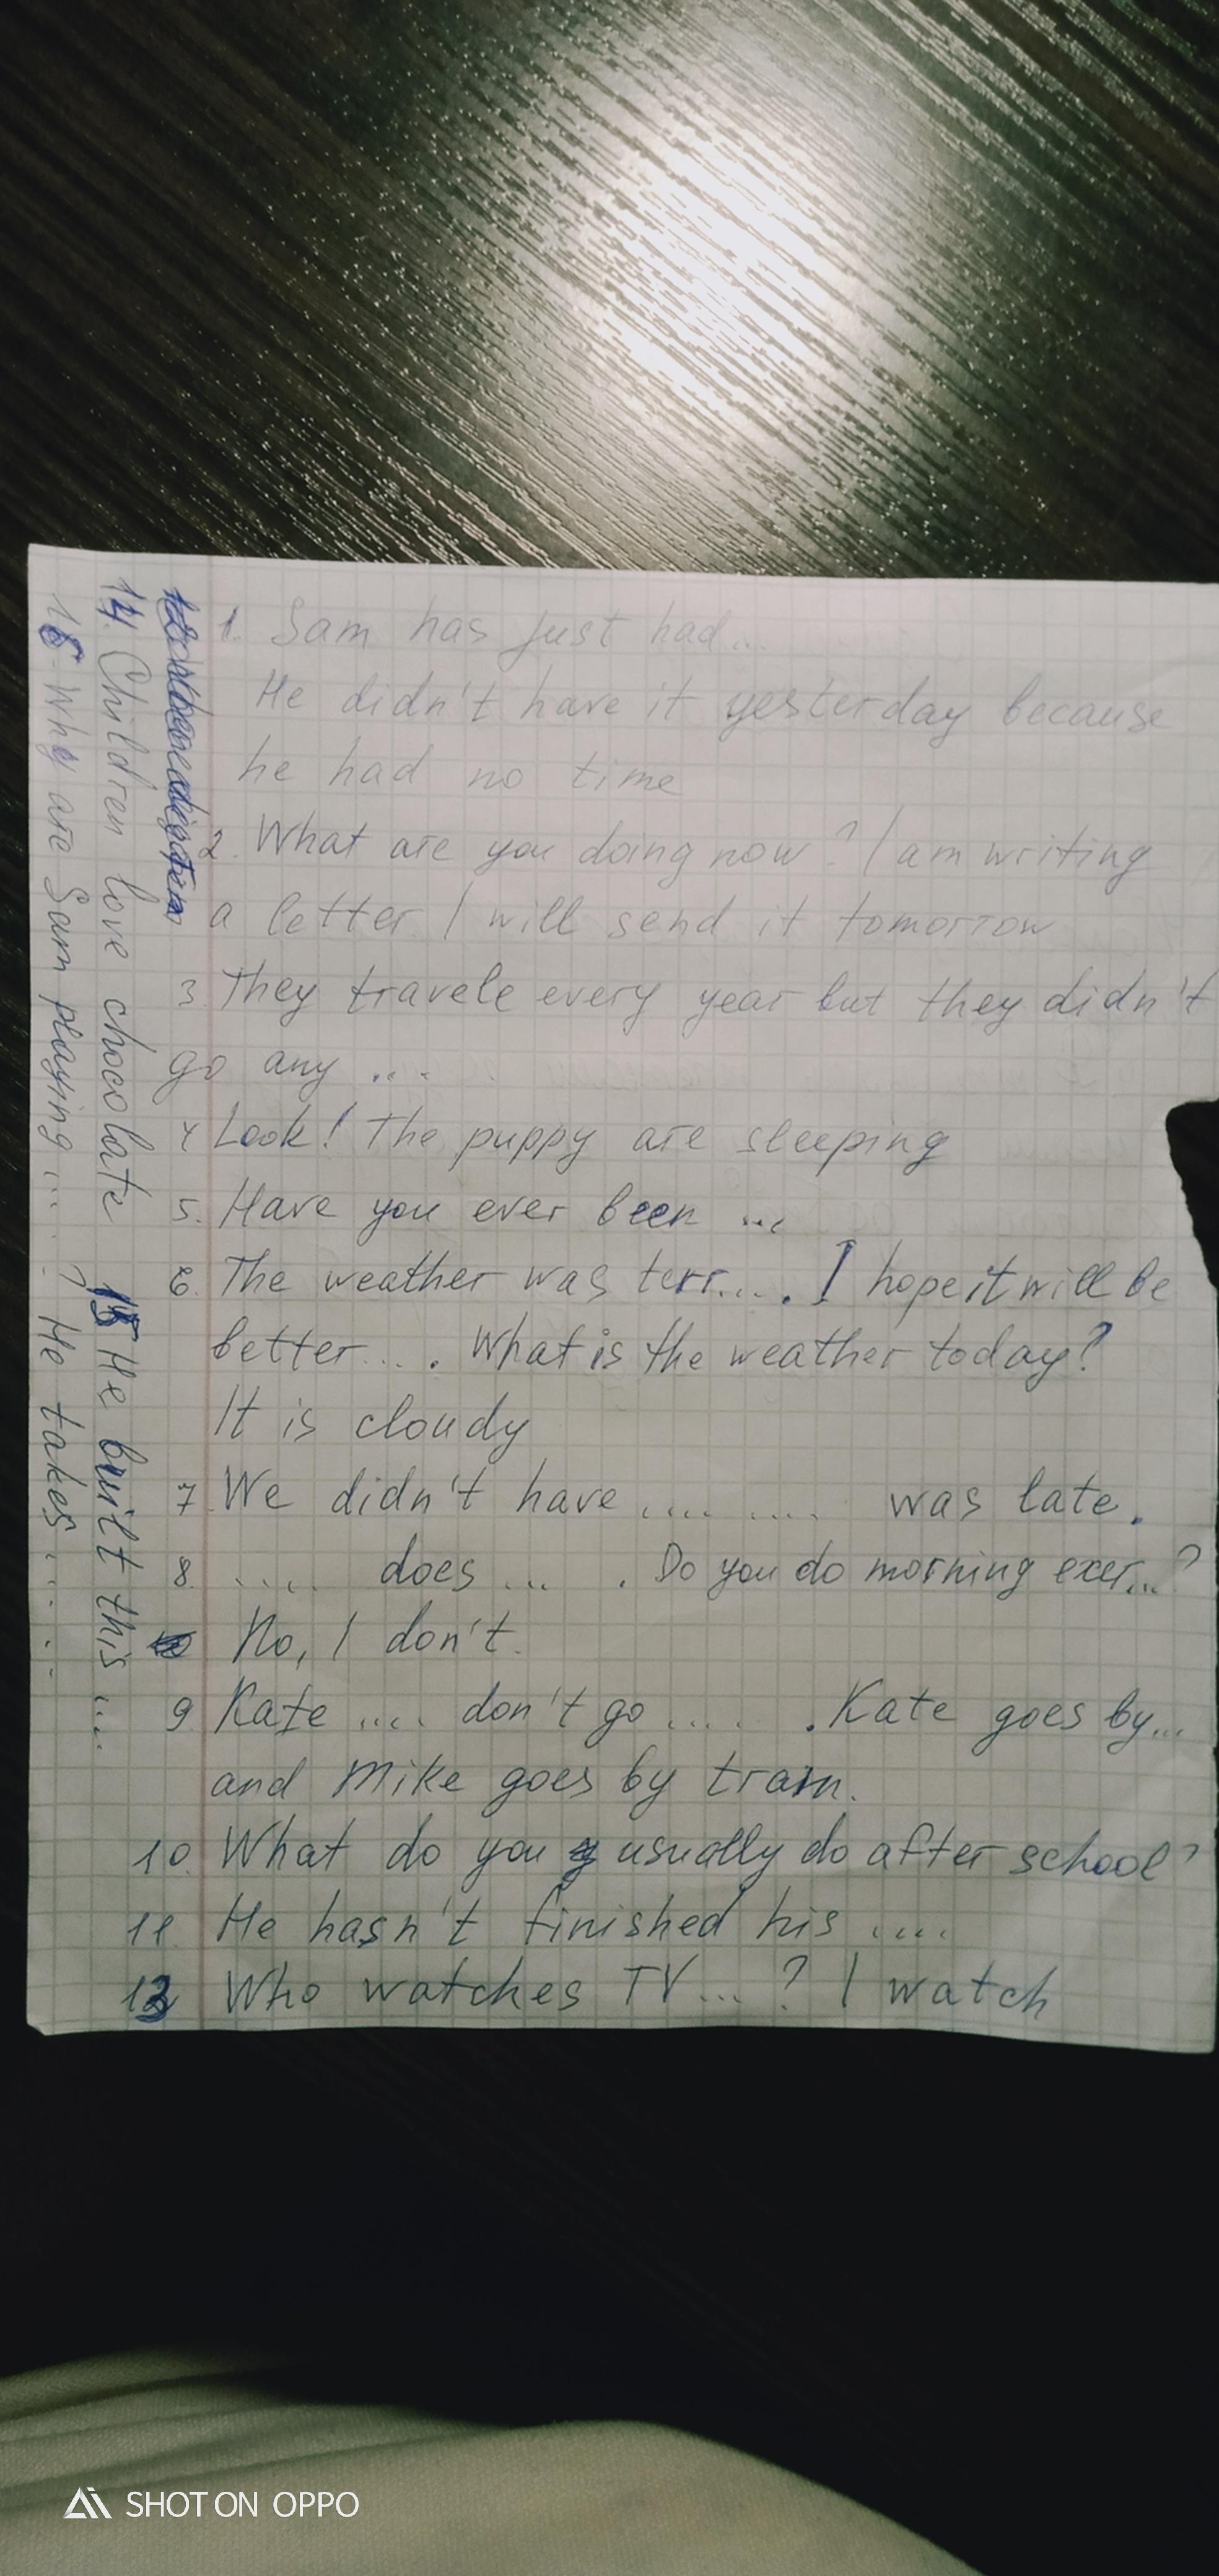 1. Sam has just had...
He didn't have it yesterday because
he had no time
2. What are you doing now? I am writing
a letter. I will send it tomorrow
3. They travele every year but they didn't
go any ...
4 Look! The puppy are sleeping
5. Have you ever been ...
6. The weather was terr.... . I hope it will be
better... . What is the weather today?
It is cloudy
7. We didn't have .... .... was late.
8. .... does ... . Do you do morning exer...?
No, I don't.
9 Kate .... don't go .... . Kate goes by...
and Mike goes by tram.
10. What do you usually do after school?
11. He hasn't finished his ....
13 Who watches TV...? I watch
14. Children love chocolate 15 He built this ....
16. Why are Sam playing ....? He takes ......
SHOT ON OPPO